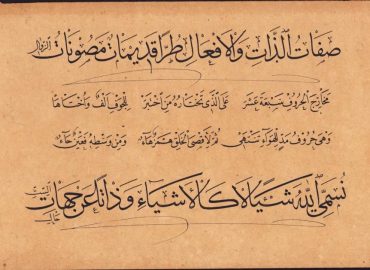 صفات الذات والافعال طرا قديمات مصونات الزوال
مخارج الحروف سبعة عشر على الذي يختاره من اختبر للجوف الف واختاها
وهي حروف مد للهواء تنتهي ثم لاقصى الحلق همز هاء ومن وسطه فعين حاء
نسمي الله شيئا لا كالاشياء وذاتا عن جهات الست خالي